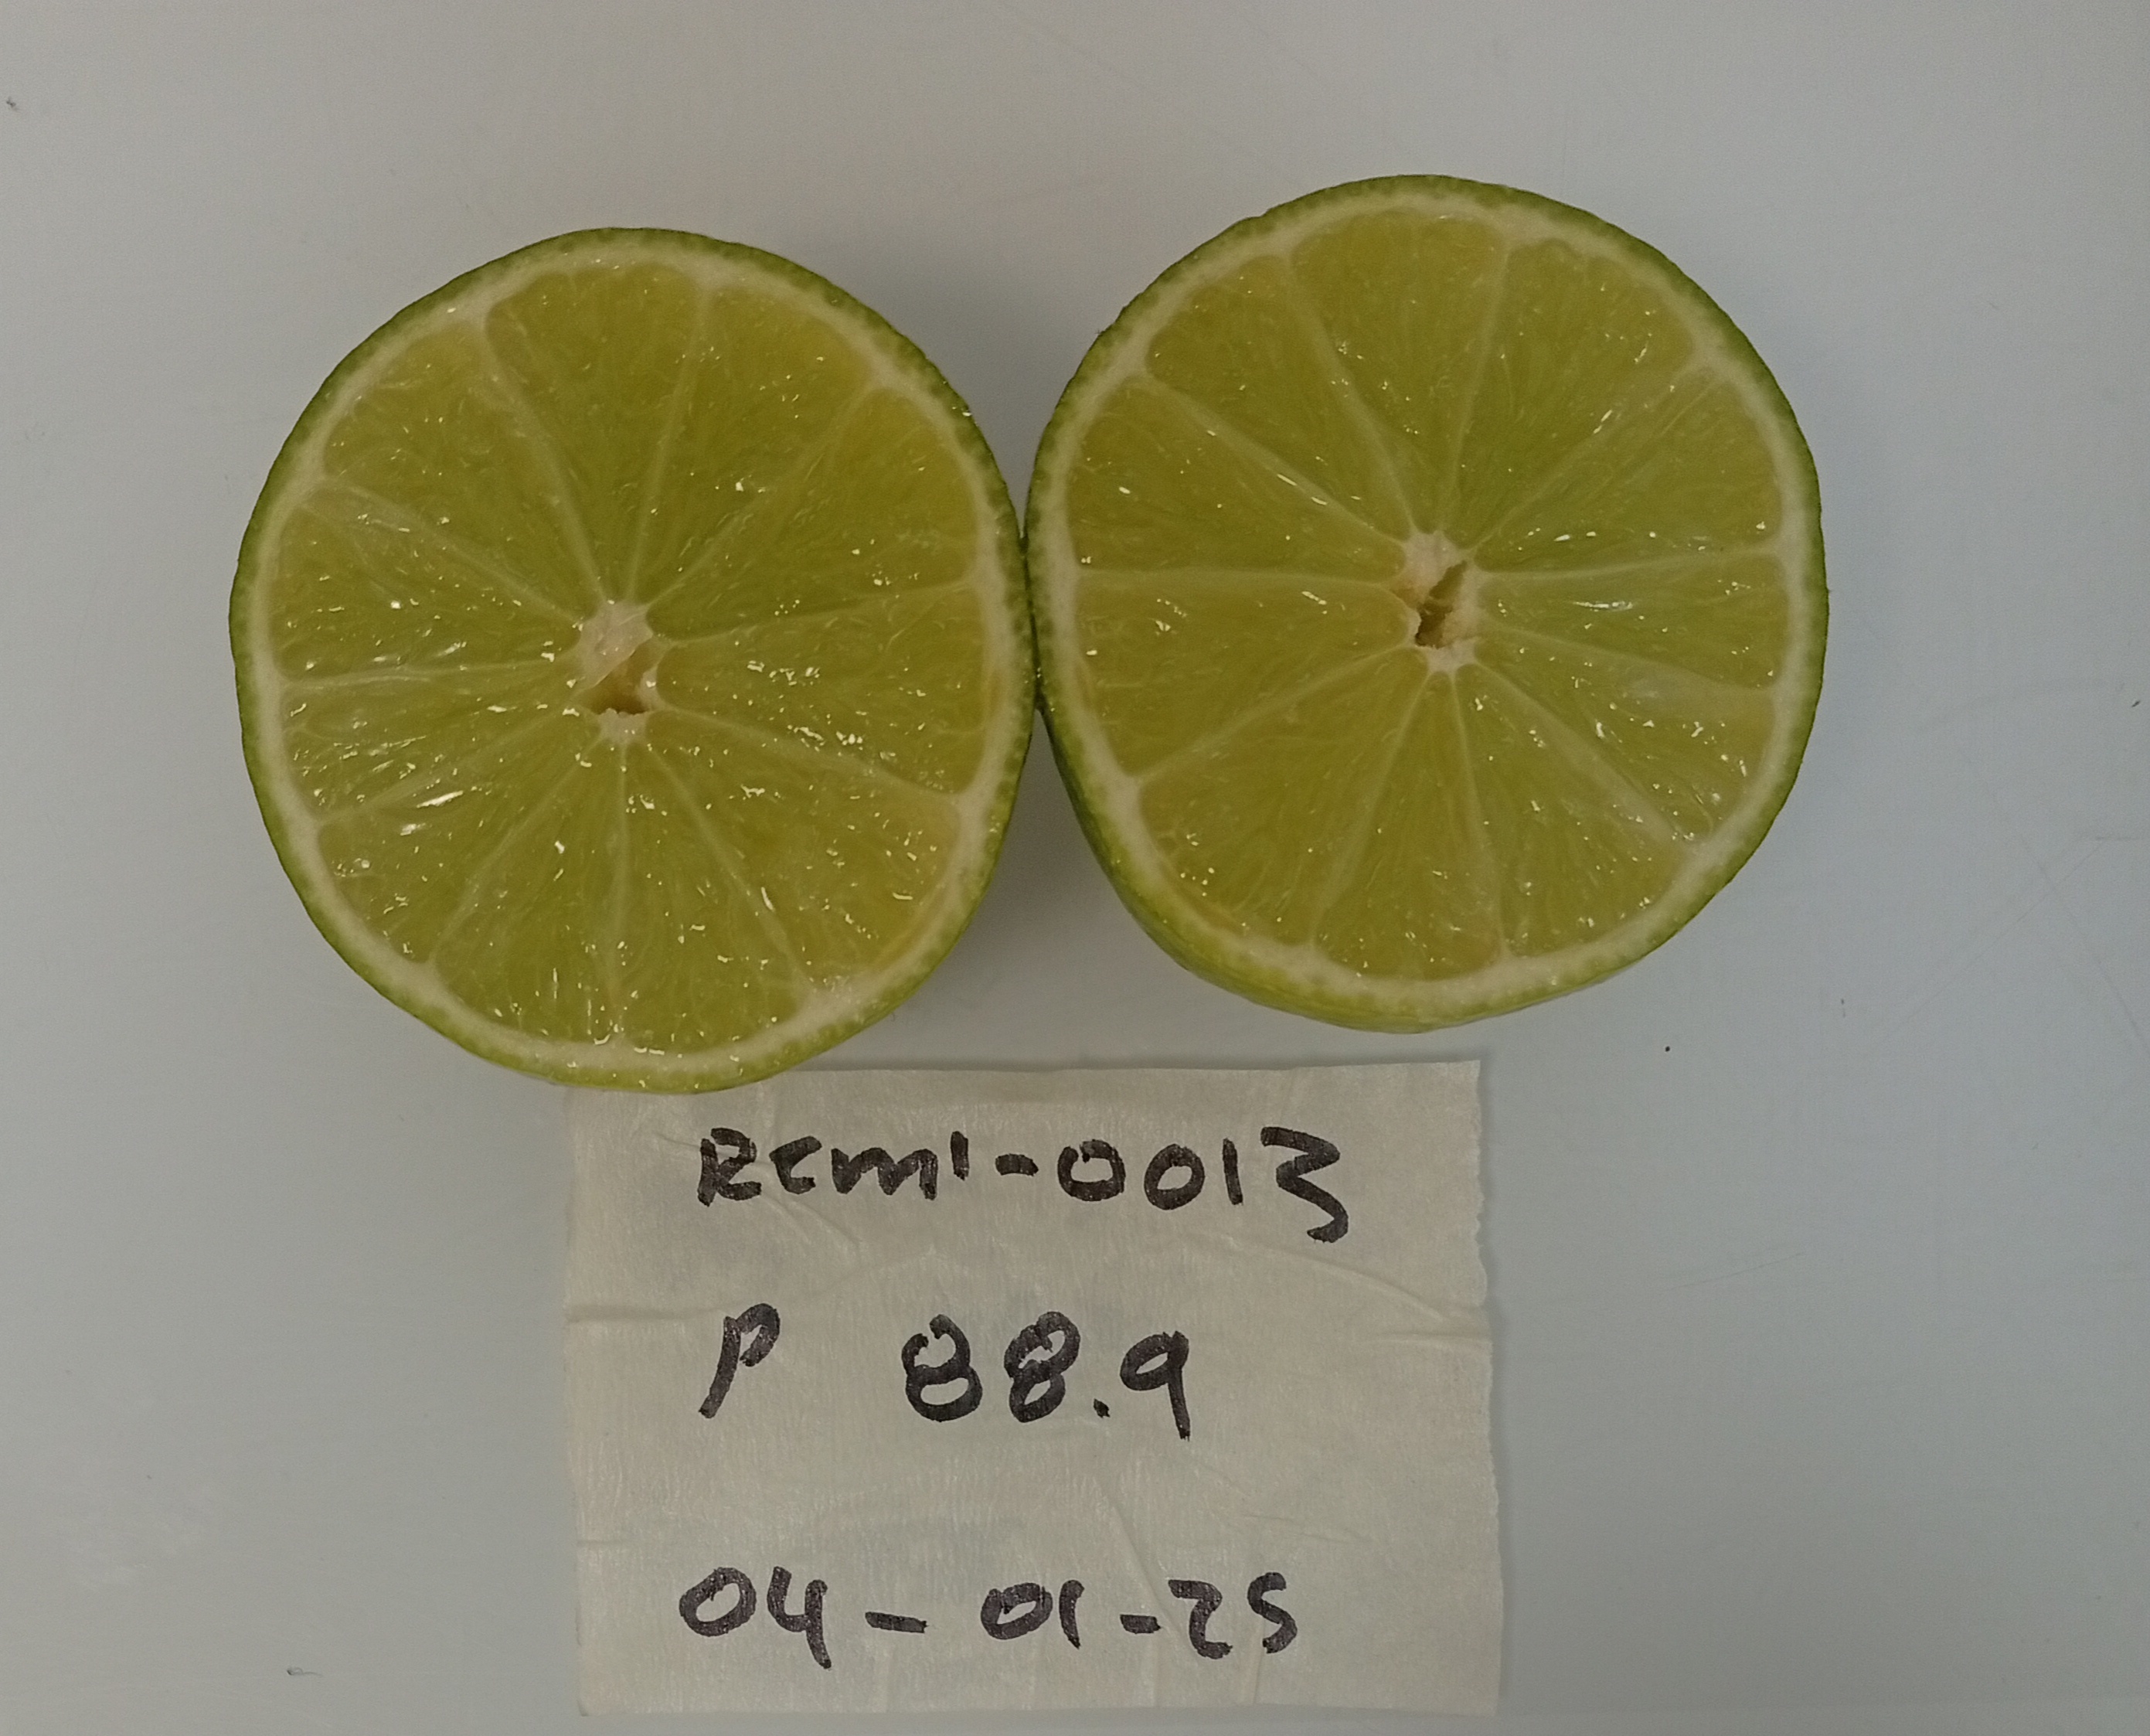 RCM1-0013
P 88.9
04-01-25